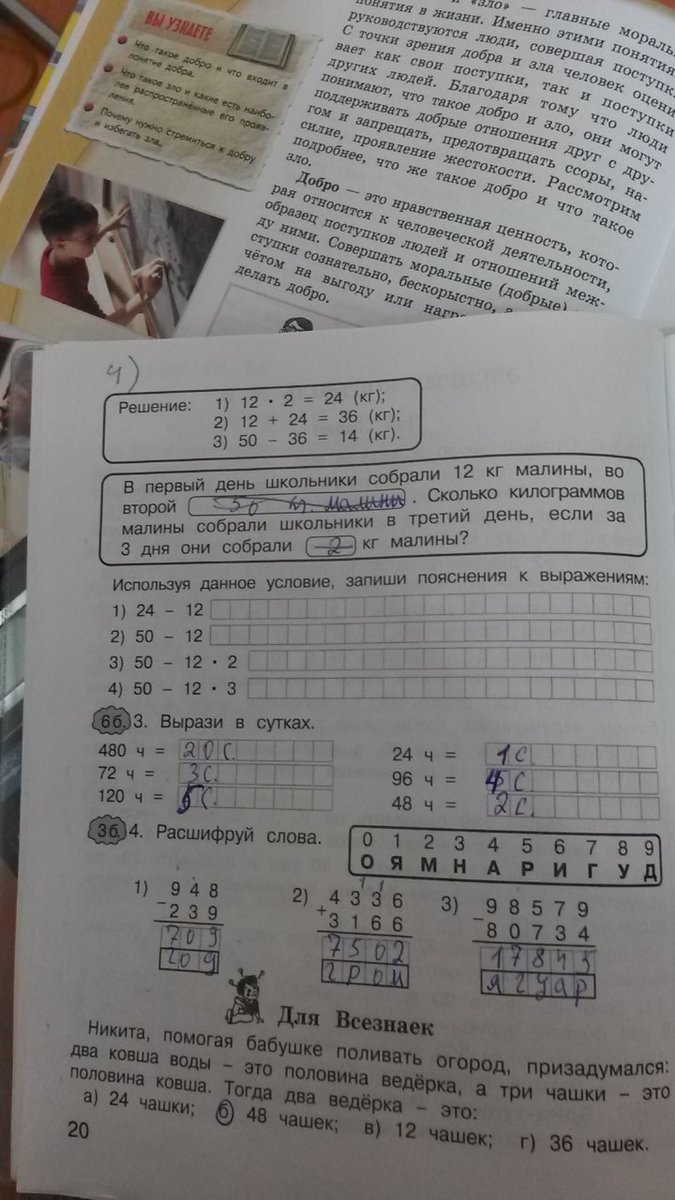 ВЫ УЗНАЕТЕ
Что такое добро и что входит в
понятие добра.
Что такое зло и какие есть наибо-
лее распространённые его прояв-
ления.
Почему нужно стремиться к добру
и избегать зла.
и «зло» — главные мораль
понятия в жизни. Именно этими понятия
руководствуются люди, совершая поступк
С точки зрения добра и зла человек оцени
вает как свои поступки, так и поступки
других людей. Благодаря тому что люди
понимают, что такое добро и зло, они могут
поддерживать добрые отношения друг с дру-
гом и запрещать, предотвращать ссоры, на-
силие, проявление жестокости. Рассмотрим
подробнее, что же такое добро и что такое
зло.
Добро — это нравственная ценность, кото-
рая относится к человеческой деятельности,
образец поступков людей и отношений меж-
ду ними. Совершать моральные (добрые)
ступки сознательно, бескорыстно,
чётом на выгоду или нагр
делать добро.
4)
Решение: 1) 12 · 2 = 24 (кг);
2) 12 + 24 = 36 (кг);
3) 50 – 36 = 14 (кг).
В первый день школьники собрали 12 кг малины, во
второй 50 кг. малины . Сколько килограммов
малины собрали школьники в третий день, если за
3 дня они собрали 2 кг малины?
Используя данное условие, запиши пояснения к выражениям:
1) 24 – 12
2) 50 – 12
3) 50 – 12 · 2
4) 50 – 12 · 3
6б. 3. Вырази в сутках.
480 ч = 20 с. 24 ч = 1 с.
72 ч = 3 с. 96 ч = 4 с
120 ч = 5 с. 48 ч = 2 с.
3б. 4. Расшифруй слова.
0 1 2 3 4 5 6 7 8 9
О Я М Н А Р И Г У Д
1) 948 2) 4336 3) 98579
– 239 + 3166 – 80734
709 7502 17845
год гром ягуар
Для Всезнаек
Никита, помогая бабушке поливать огород, призадумался:
два ковша воды – это половина ведёрка, а три чашки – это
половина ковша. Тогда два ведёрка – это:
а) 24 чашки; б) 48 чашек; в) 12 чашек; г) 36 чашек.
20